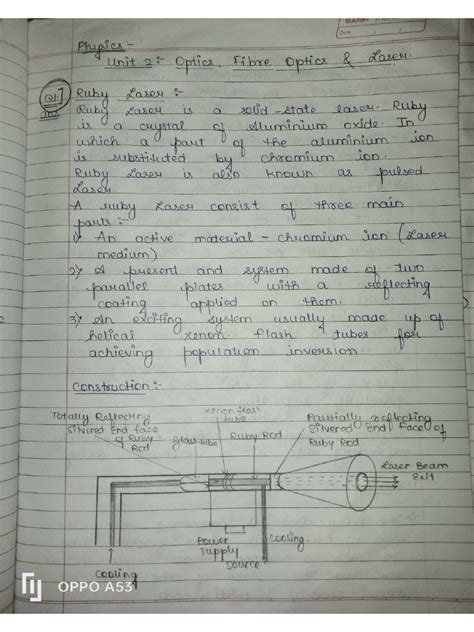 Physics:-
Unit 2:- Optics, Fibre Optics & Laser.
Q1.7 Ruby Laser :-
Ruby Laser is a solid-state laser. Ruby
is a crystal of Aluminium oxide. In
which a part of the aluminium ion
is substituted by chromium ion.
Ruby Laser is also known as pulsed
Laser
A ruby Laser consist of three main
parts:-
1) An active material - chromium ion (Laser
medium)
2) A present and system made of two
parallel plates with a reflecting
coating applied on them.
3) An exciting system usually made up of
helical xenon flash tubes for
achieving population inversion.
Construction:-
Totally Reflecting
Silvered End face
of Ruby
Rod
Glass tube
Xenon flash
tube
Ruby Rod
Partially reflecting
Silvered End face of
Ruby Rod
Laser Beam
Exit
Power
Supply
Source
Cooling.
Cooling
OPPO A53